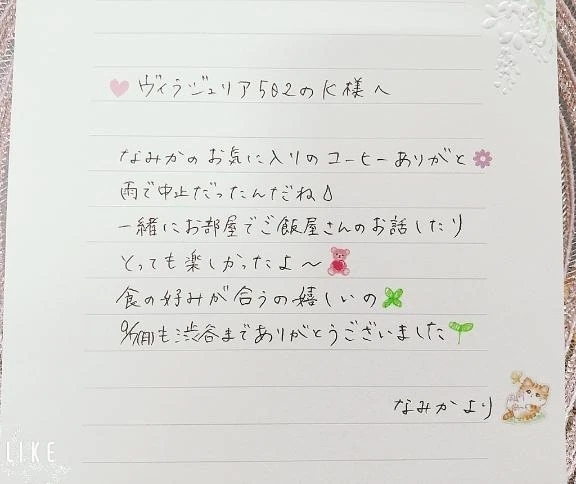 ヴィラジュリア502のK様へ
なみかのお気に入りのコーヒーありがと
雨で中止だったんだね
一緒にお部屋でご飯屋さんのお話したり
とっても楽しかったよ〜
食の好みが合うの嬉しいの
9/7(月)も渋谷までありがとうございました
なみかより
LIKE